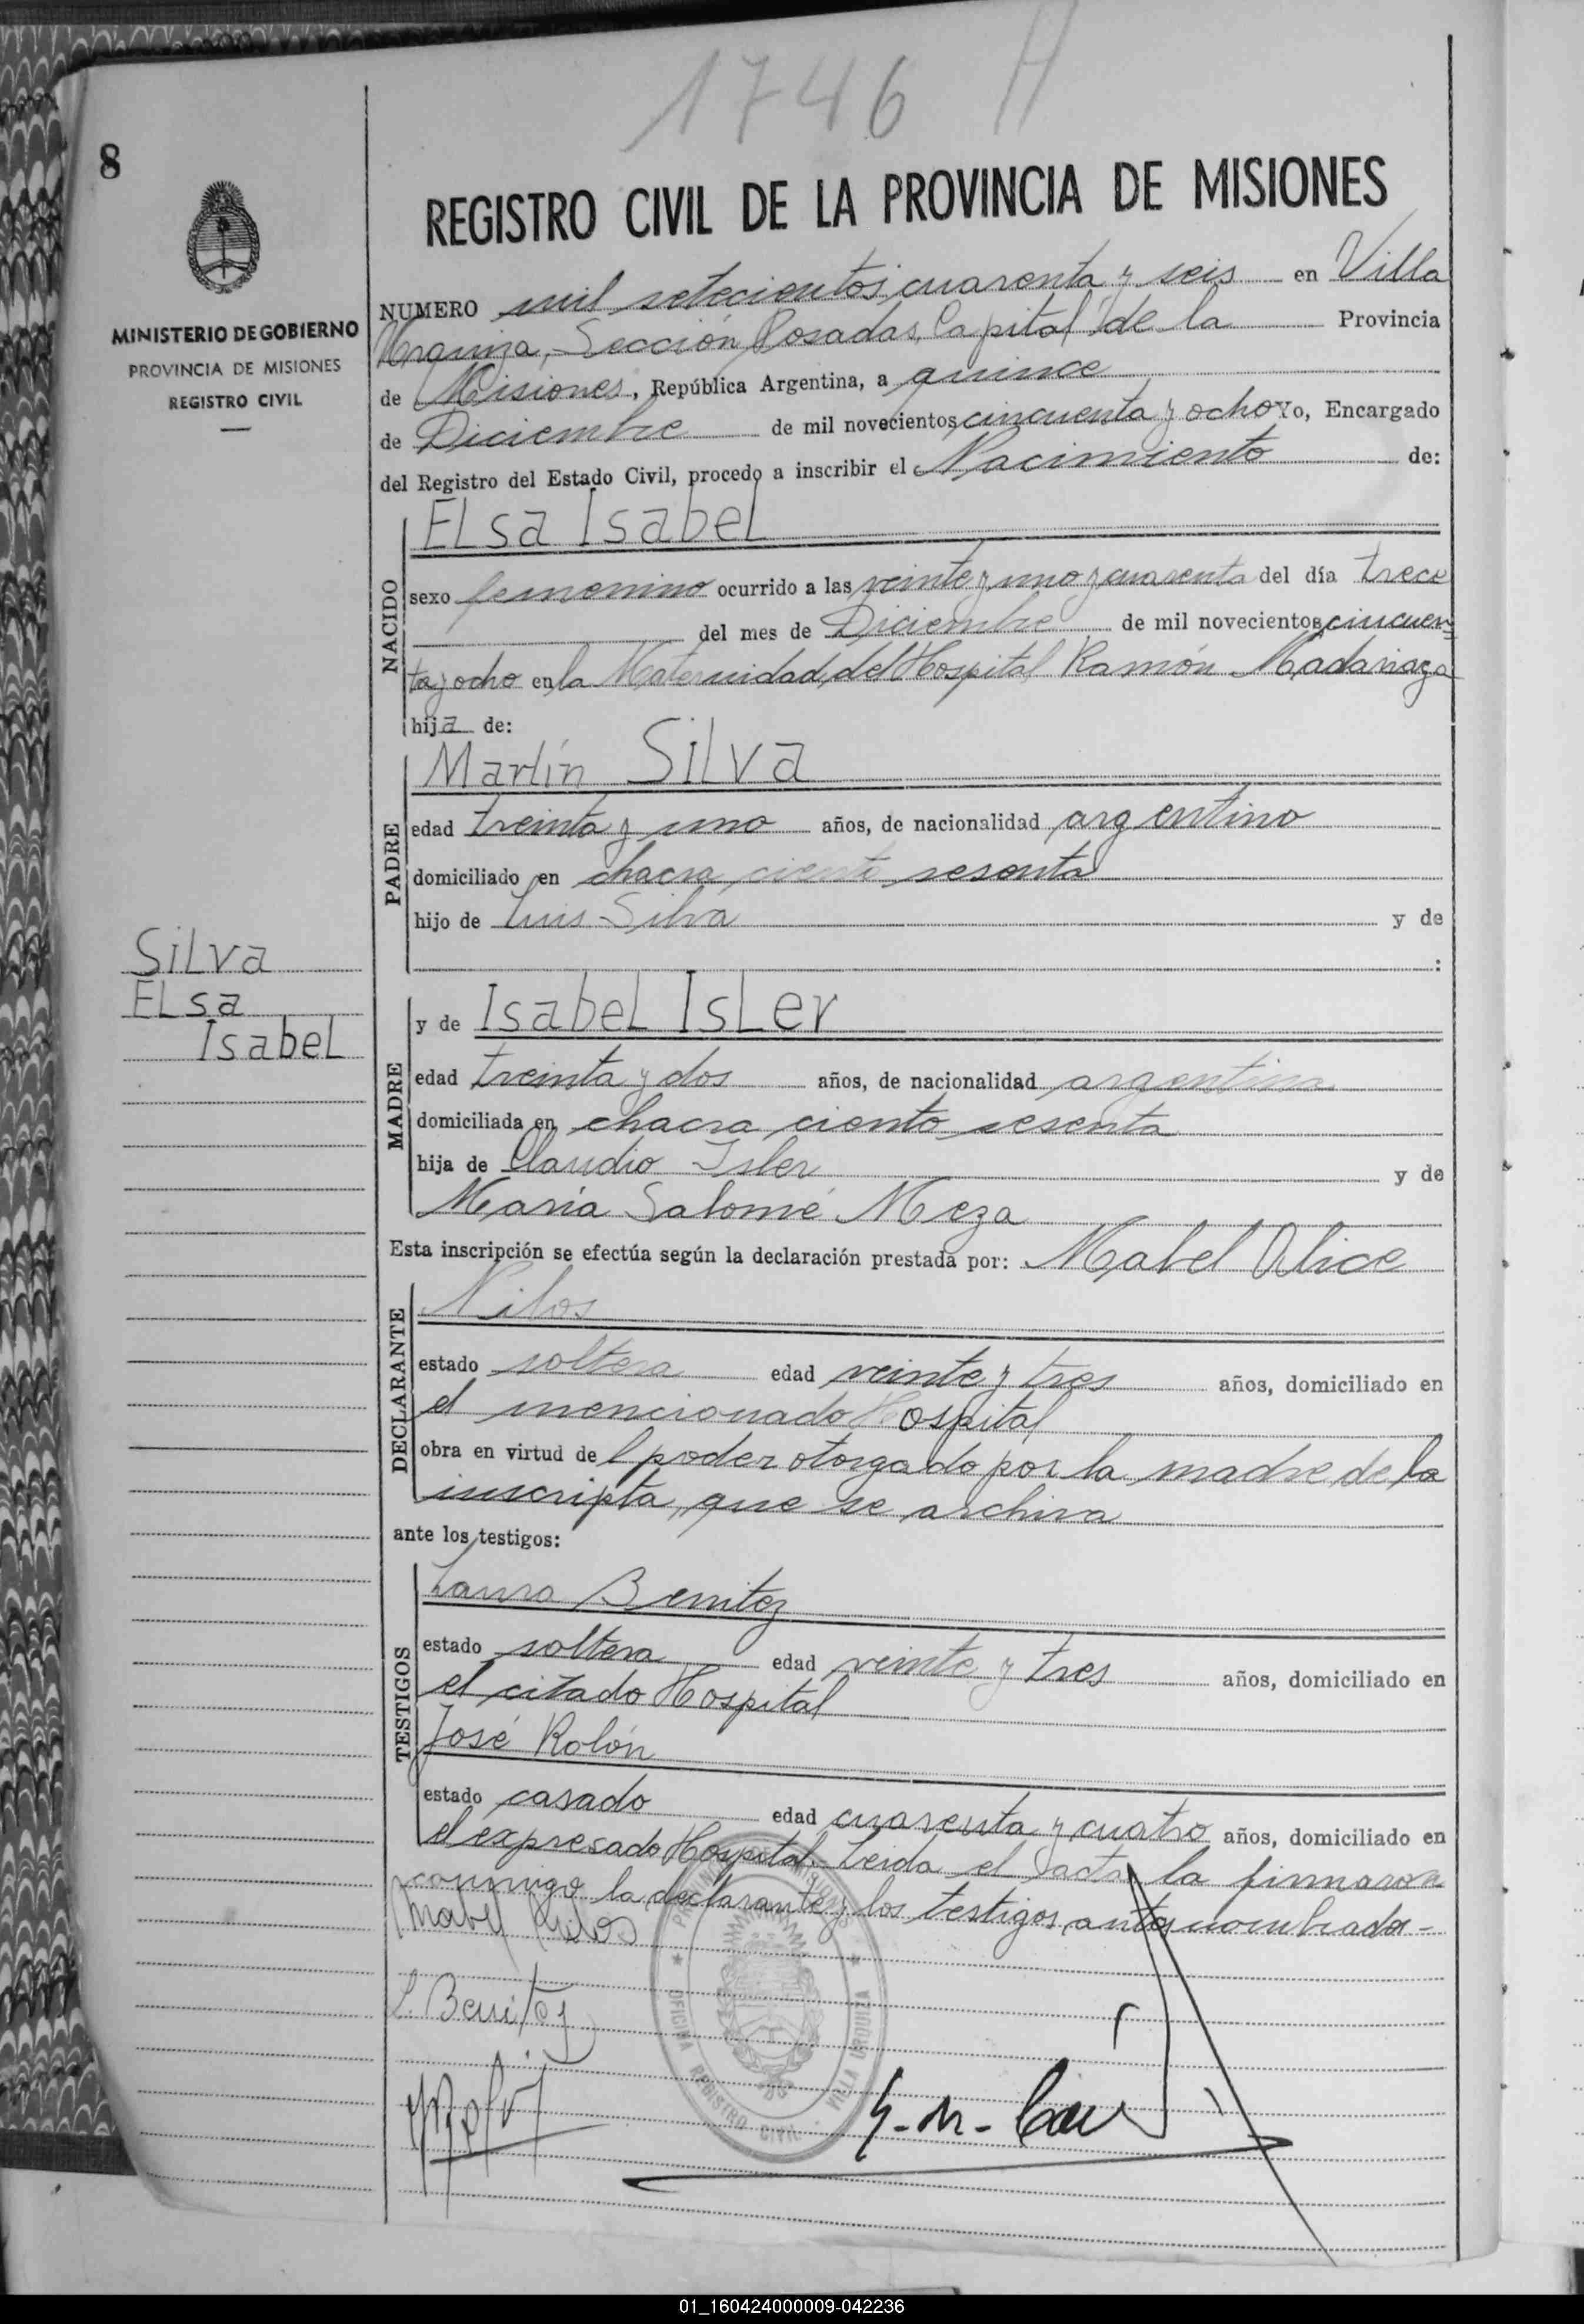 1746 H
8
REGISTRO CIVIL DE LA PROVINCIA DE MISIONES
MINISTERIO DE GOBIERNO
PROVINCIA DE MISIONES
REGISTRO CIVIL
NUMERO mil setecientos cuarenta y seis en Villa
Urquiza, Sección Posadas, Capital de la Provincia
de Misiones, República Argentina, a quince
de Diciembre de mil novecientos cincuenta y ocho Yo, Encargado
del Registro del Estado Civil, procedo a inscribir el Nacimiento de:
NACIDO
Elsa Isabel
sexo femenino ocurrido a las veinte y uno y cuarenta del día trece
del mes de Diciembre de mil novecientos cincuen
ta y ocho en la Maternidad del Hospital Ramón Madariaga
hija de:
PADRE
Martín Silva
edad treinta y uno años, de nacionalidad argentino
domiciliado en chacra ciento sesenta
hijo de Luis Silva y de
:
Silva
Elsa
Isabel
MADRE
y de Isabel Isler
edad treinta y dos años, de nacionalidad argentina
domiciliada en chacra ciento sesenta
hija de Claudio Isler y de
María Salomé Meza
Esta inscripción se efectúa según la declaración prestada por: Mabel Alice
DECLARANTE
Nilos
estado soltera edad veinte y tres años, domiciliado en
el mencionado Hospital
obra en virtud del poder otorgado por la madre de la
inscripta, que se archiva
ante los testigos:
TESTIGOS
Laura Benitez
estado soltera edad veinte y tres años, domiciliado en
el citado Hospital
José Rolón
estado casado edad cuarenta y cuatro años, domiciliado en
el expresado Hospital. Leida el acta, la firmaron
conmigo la declarante y los testigos antes nombrados-
Mabel Nilos
L. Benitez
PROVINCIA DE MISIONES
OFICINA REGISTRO CIVIL - VILLA URQUIZA
01_160424000009-042236